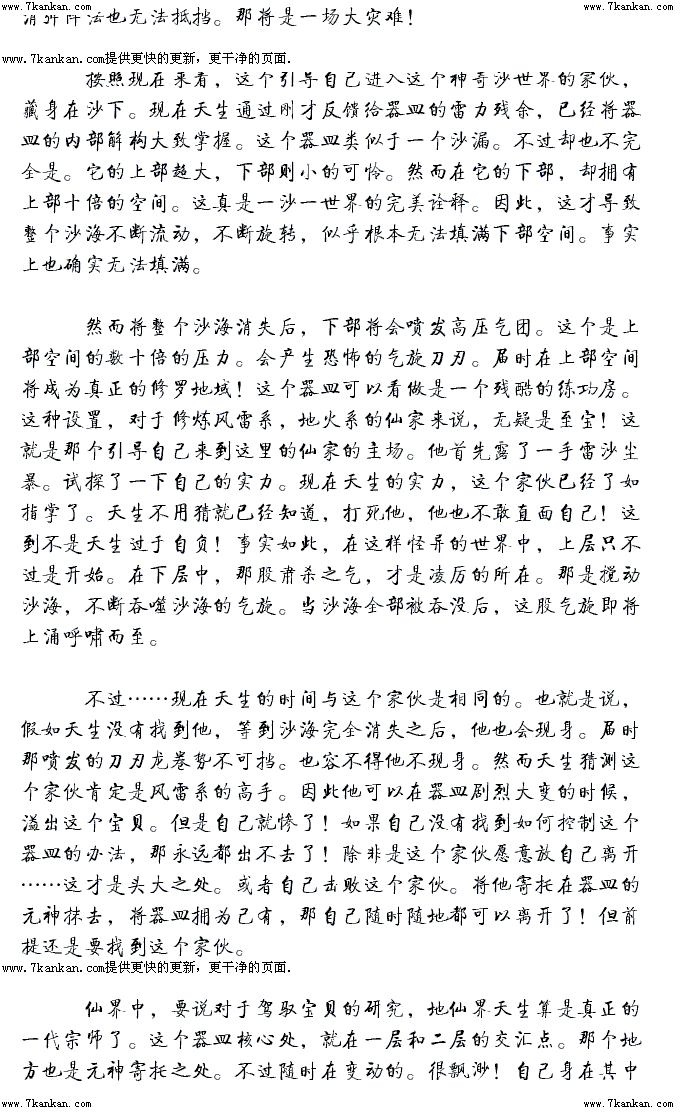 www.7kankan.com www.7kankan.com
阵法也无法抵挡。那将是一场大灾难！
www.7kankan.com提供更快的更新，更干净的页面.
按照现在来看，这个引导自己进入这个神奇沙世界的家伙，
藏身在沙下。现在天生通过刚才反馈给器皿的雷力残余，已经将器
皿的内部解构大致掌握。这个器皿类似于一个沙漏。不过却也不完
全是。它的上部超大，下部则小的可怜。然而在它的下部，却拥有
上部十倍的空间。这真是一沙一世界的完美诠释。因此，这才导致
整个沙海不断流动，不断旋转，似乎根本无法填满下部空间。事实
上也确实无法填满。
然而将整个沙海消失后，下部将会喷发高压气团。这个是上
部空间的数十倍的压力。会产生恐怖的气旋刀刃。届时在上部空间
将成为真正的修罗地域！这个器皿可以看做是一个残酷的练功房。
这种设置，对于修炼风雷系，地火系的仙家来说，无疑是至宝！这
就是那个引导自己来到这里的仙家的主场。他首先露了一手雷沙尘
暴。试探了一下自己的实力。现在天生的实力，这个家伙已经了如
指掌了。天生不用猜就已经知道，打死他，他也不敢直面自己！这
到不是天生过于自负！事实如此，在这样怪异的世界中，上层只不
过是开始。在下层中，那股肃杀之气，才是凌厉的所在。那是搅动
沙海，不断吞噬沙海的气旋。当沙海全部被吞没后，这股气旋即将
上涌呼啸而至。
不过……现在天生的时间与这个家伙是相同的。也就是说，
假如天生没有找到他，等到沙海完全消失之后，他也会现身。届时
那喷发的刀刃龙卷势不可挡。也容不得他不现身。然而天生猜测这
个家伙肯定是风雷系的高手。因此他可以在器皿剧烈大变的时候，
溢出这个宝贝。但是自己就惨了！如果自己没有找到如何控制这个
器皿的办法，那永远都出不去了！除非是这个家伙愿意放自己离开
……这才是头大之处。或者自己击败这个家伙。将他寄托在器皿的
元神抹去，将器皿拥为己有，那自己随时随地都可以离开了！但前
提还是要找到这个家伙。
www.7kankan.com提供更快的更新，更干净的页面.
仙界中，要说对于驾驭宝贝的研究，地仙界天生算是真正的
一代宗师了。这个器皿核心处，就在一层和二层的交汇点。那个地
方也是元神寄托之处。不过随时在变动的。很飘渺！自己身在其中
www.7kankan.com www.7kankan.com